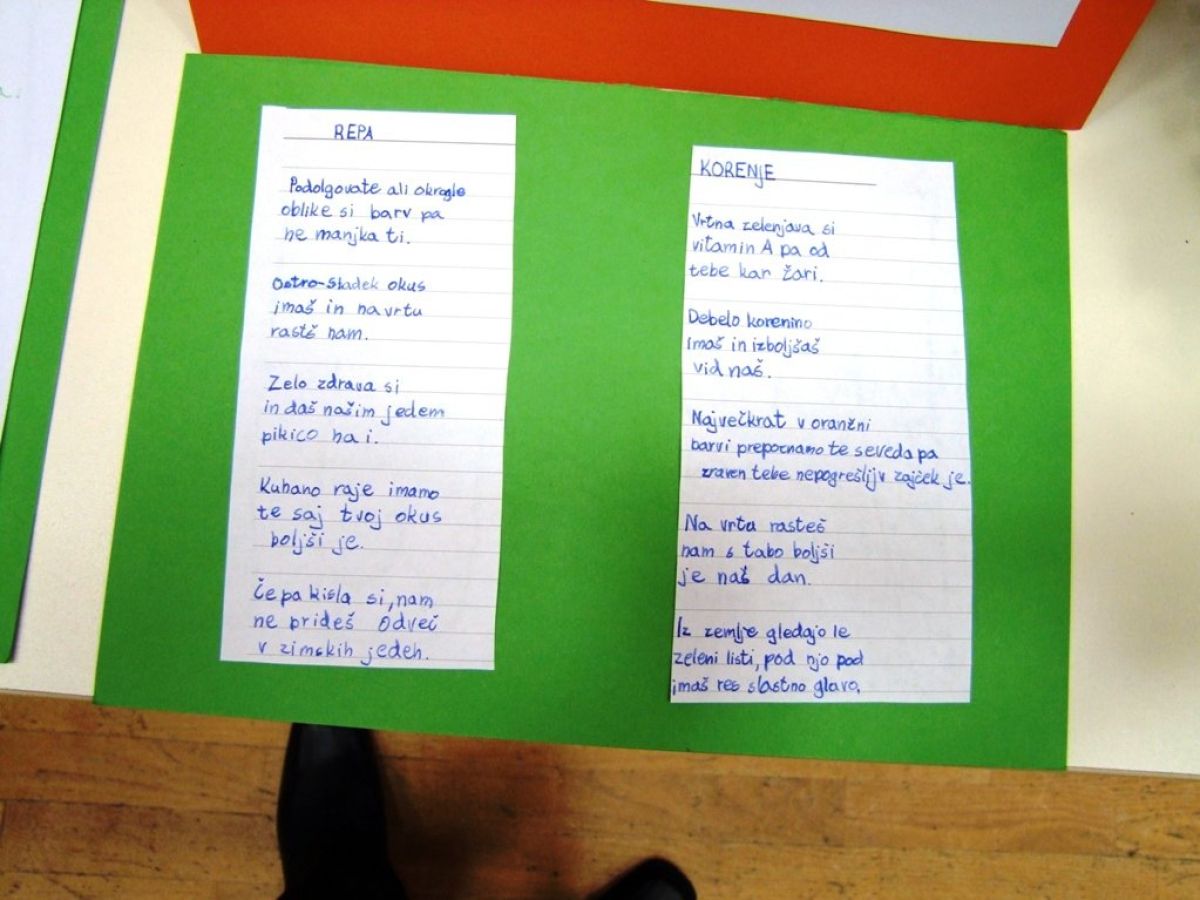 a.
REPA
Podolgovate ali okrogle
oblike si barv pa
ne manjka ti.
Ostro-sladek okus
imaš in na vrtu
rasteš nam.
Zelo zdrava si
in daš našim jedem
pikico na i.
Kuhano raje imamo
te saj tvoj okus
boljši je.
Če pa kisla si, nam
ne prideš odveč
v zimskih jedeh.
KORENJE
Vrtna zelenjava si
vitamin A pa od
tebe kar žari.
Debelo korenino
imaš in izboljšaš
vid naš.
Največkrat v oranžni
barvi prepoznamo te seveda pa
zraven tebe nepogrešljiv zajček je.
Na vrtu rasteš
nam s tabo boljši
je naš dan.
Iz zemlje gledajo le
zeleni listi, pod njo pod
imaš res slastno glavo.